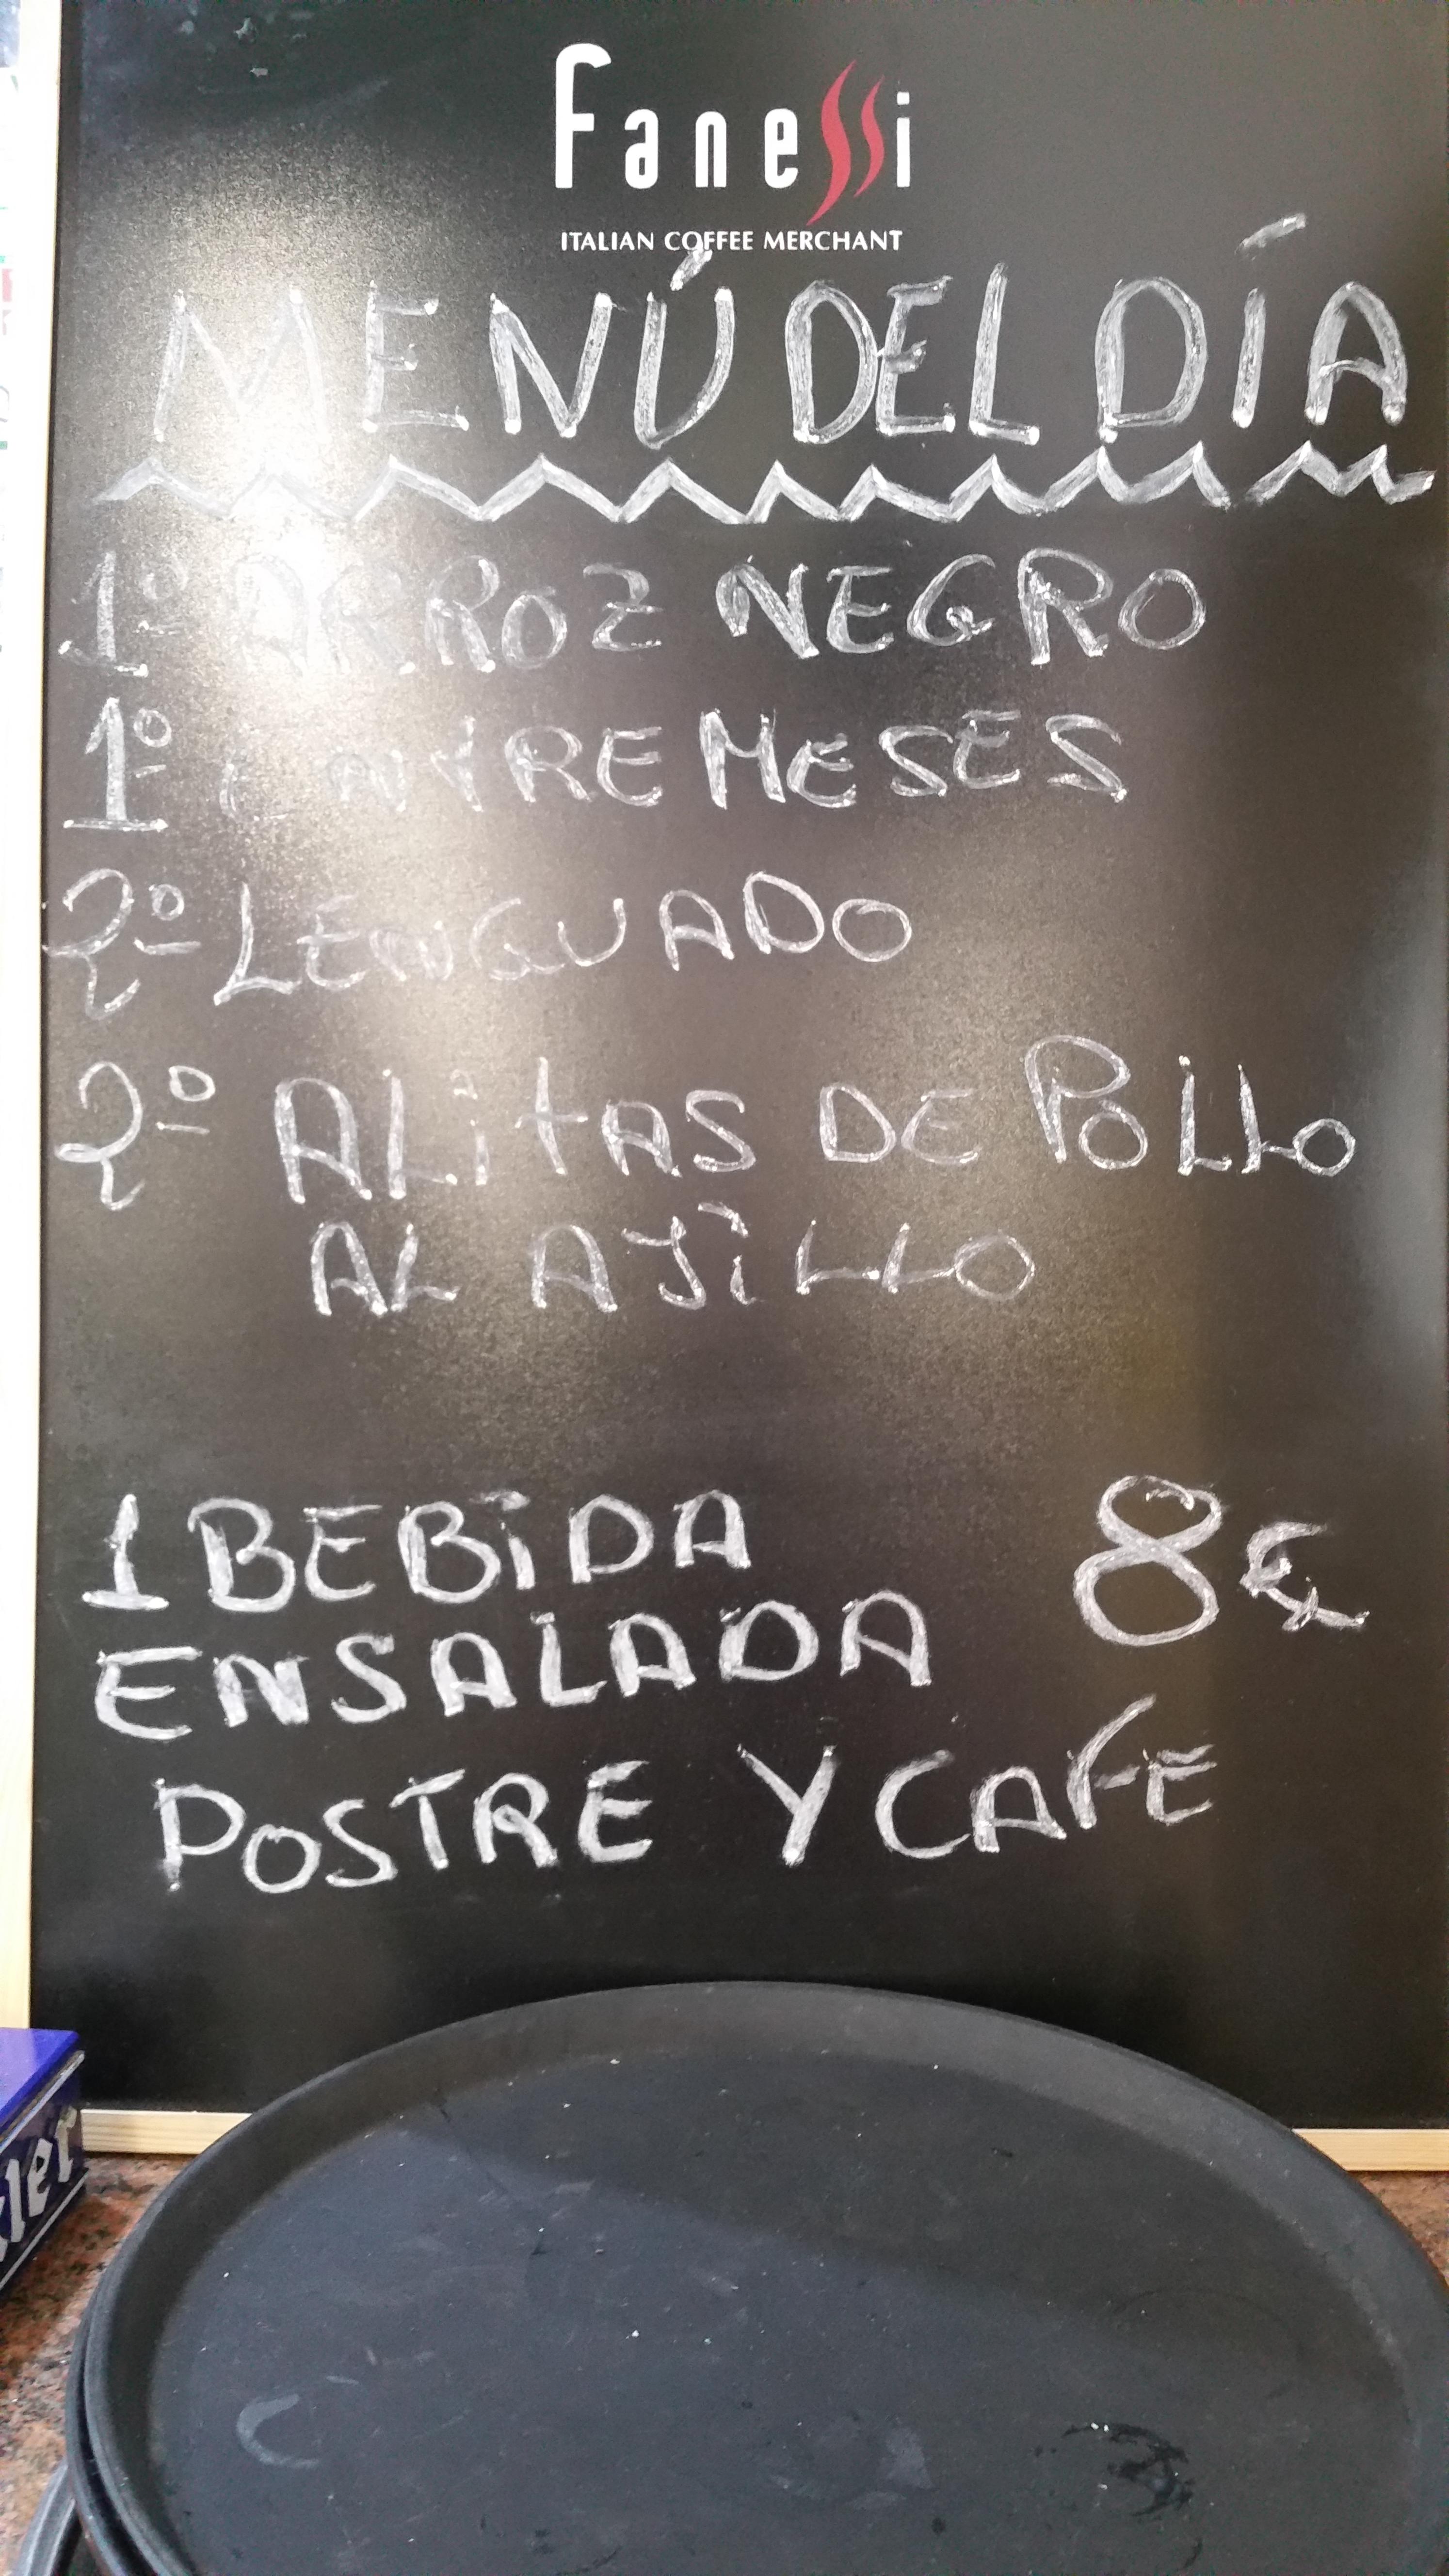 Fanessi
ITALIAN COFFEE MERCHANT
MENÚ DEL DÍA
1º ARROZ NEGRO
1º ENTREMESES
2º LENGUADO
2º ALitAS DE POLLO
AL AJiLLO
1 BEBiDA 8€
ENSALADA
POSTRE Y CAFE